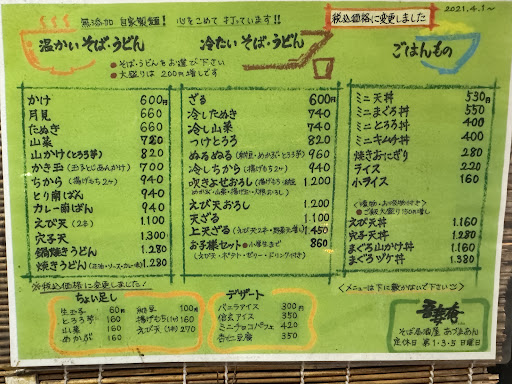 無添加 自家製麺! 心をこめて打っています!!
税込価格に変更しました
2021.4.1〜
温かいそば・うどん
冷たいそば・うどん
ごはんもの
●そば・うどんをお選び下さい
●大盛りは 200円増しです
かけ 600円
月見 660
たぬき 660
山菜 720
山かけ(とろろ芋) 820
かき玉(玉子とじあんかけ) 760
ちから(揚げもち2ヶ) 940
とり南ばん 940
カレー南ばん 940
えび天(2本) 1.100
穴子天 1.300
鍋焼きうどん 1.280
焼きうどん 1.280
ざる 600円
冷したぬき 740
冷し山菜 740
つけとろろ 820
ぬるぬる(納豆・めかぶ・とろろ芋) 960
冷しちから(揚げもち2ヶ) 940
吹きよせおろし 1.200
えび天おろし 1.200
天ざる 1.100
上天ざる 1.450
お子様セット ●小学生まで 860
(えび天・ポテト・ゼリー・ドリンク付き)
ミニ天丼 530円
ミニまぐろ丼 550
ミニとろろ丼 400
ミニキムチ丼 400
焼きおにぎり 280
ライス 220
小ライス 160
えび天丼 1.160
穴子天丼 1.380
まぐろ山かけ丼 1.160
まぐろヅケ丼 1.380
※税込価格に変更しました!
<メニューは下に敷かないで下さい>
ちょい足し
生玉子 60円
とろろ芋 160
山菜 160
めかぶ 160
納豆 100円
揚げもち(1ヶ) 160
えび天(1本) 270
デザート
バニラアイス 300円
信玄アイス 350
ミニチョコパフェ 420
杏仁豆腐 350
そば居酒屋 あづまあん
定休日 第1・3・5日曜日